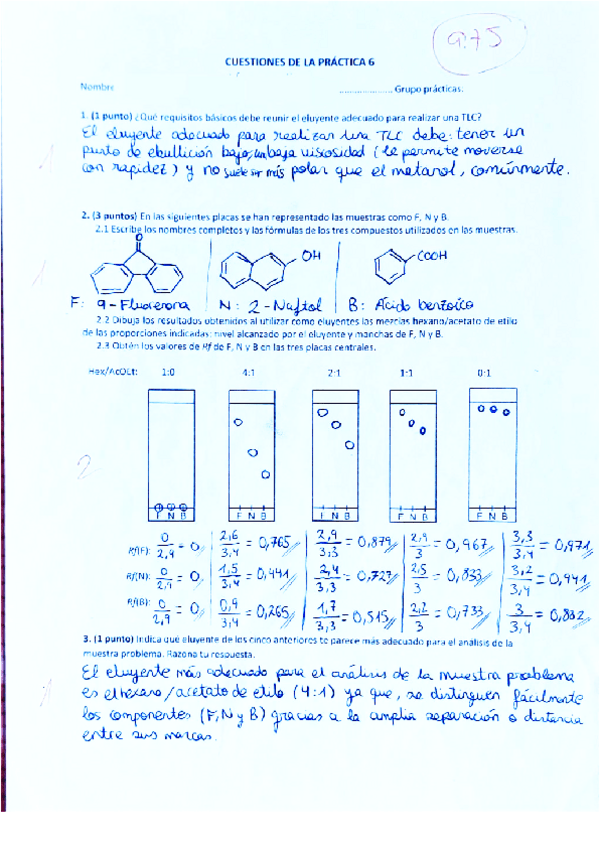 9.75
CUESTIONES DE LA PRÁCTICA 6
Nombre ..................... Grupo prácticas:
1. (1 punto) ¿Qué requisitos básicos debe reunir el eluyente adecuado para realizar una TLC?
El eluyente adecuado para realizar una TLC debe: tener un
punto de ebullición bajo, una baja viscosidad (le permite moverse
con rapidez) y no suele ser más polar que el metanol, comúnmente.
1
2. (3 puntos) En las siguientes placas se han representado las muestras como F, N y B.
2.1 Escribe los nombres completos y las fórmulas de los tres compuestos utilizados en las muestras.
O
OH
COOH
1
F: 9-Fluorenona N: 2-Naftol B: Ácido benzoico
2.2 Dibuja los resultados obtenidos al utilizar como eluyentes las mezclas hexano/acetato de etilo
de las proporciones indicadas: nivel alcanzado por el eluyente y manchas de F, N y B.
2.3 Obtén los valores de Rf de F, N y B en las tres placas centrales.
Hex/AcOEt: 1:0 4:1 2:1 1:1 0:1
2
F N B F N B F N B F N B F N B
Rf(F): 0/2,9 = 0 2,6/3,4 = 0,765 2,9/3,3 = 0,879 2,9/3 = 0,967 3,3/3,4 = 0,971
Rf(N): 0/2,9 = 0 1,5/3,4 = 0,441 2,4/3,3 = 0,727 2,5/3 = 0,833 3,2/3,4 = 0,941
Rf(B): 0/2,9 = 0 0,9/3,4 = 0,265 1,7/3,3 = 0,515 2,2/3 = 0,733 3/3,4 = 0,882
3. (1 punto) Indica qué eluyente de los cinco anteriores te parece más adecuado para el análisis de la
muestra problema. Razona tu respuesta.
El eluyente más adecuado para el análisis de la muestra problema
es el hexano/acetato de etilo (4:1) ya que, se distinguen fácilmente
los componentes (F, N y B) gracias a la amplia separación o distancia
entre sus marcas.
1